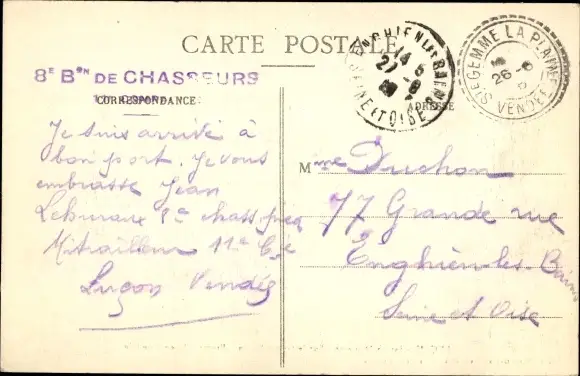 CARTE POSTALE
8E BON DE CHASSEURS
CORRESPONDANCE
ADRESSE
Je suis arrivé à
bon port. Je vous
embrasse Jean
8e chass pied
Mitrailleur 11e Cie
Luçon Vendée
Mme Duchon
77 Grande rue
Enghien-les-Bains
Seine et Oise
ENGHIEN LES BAINS
14 5
27 -8
SEINE ET OISE
STE GEMME LA PLAINE
26 -8
VENDÉE